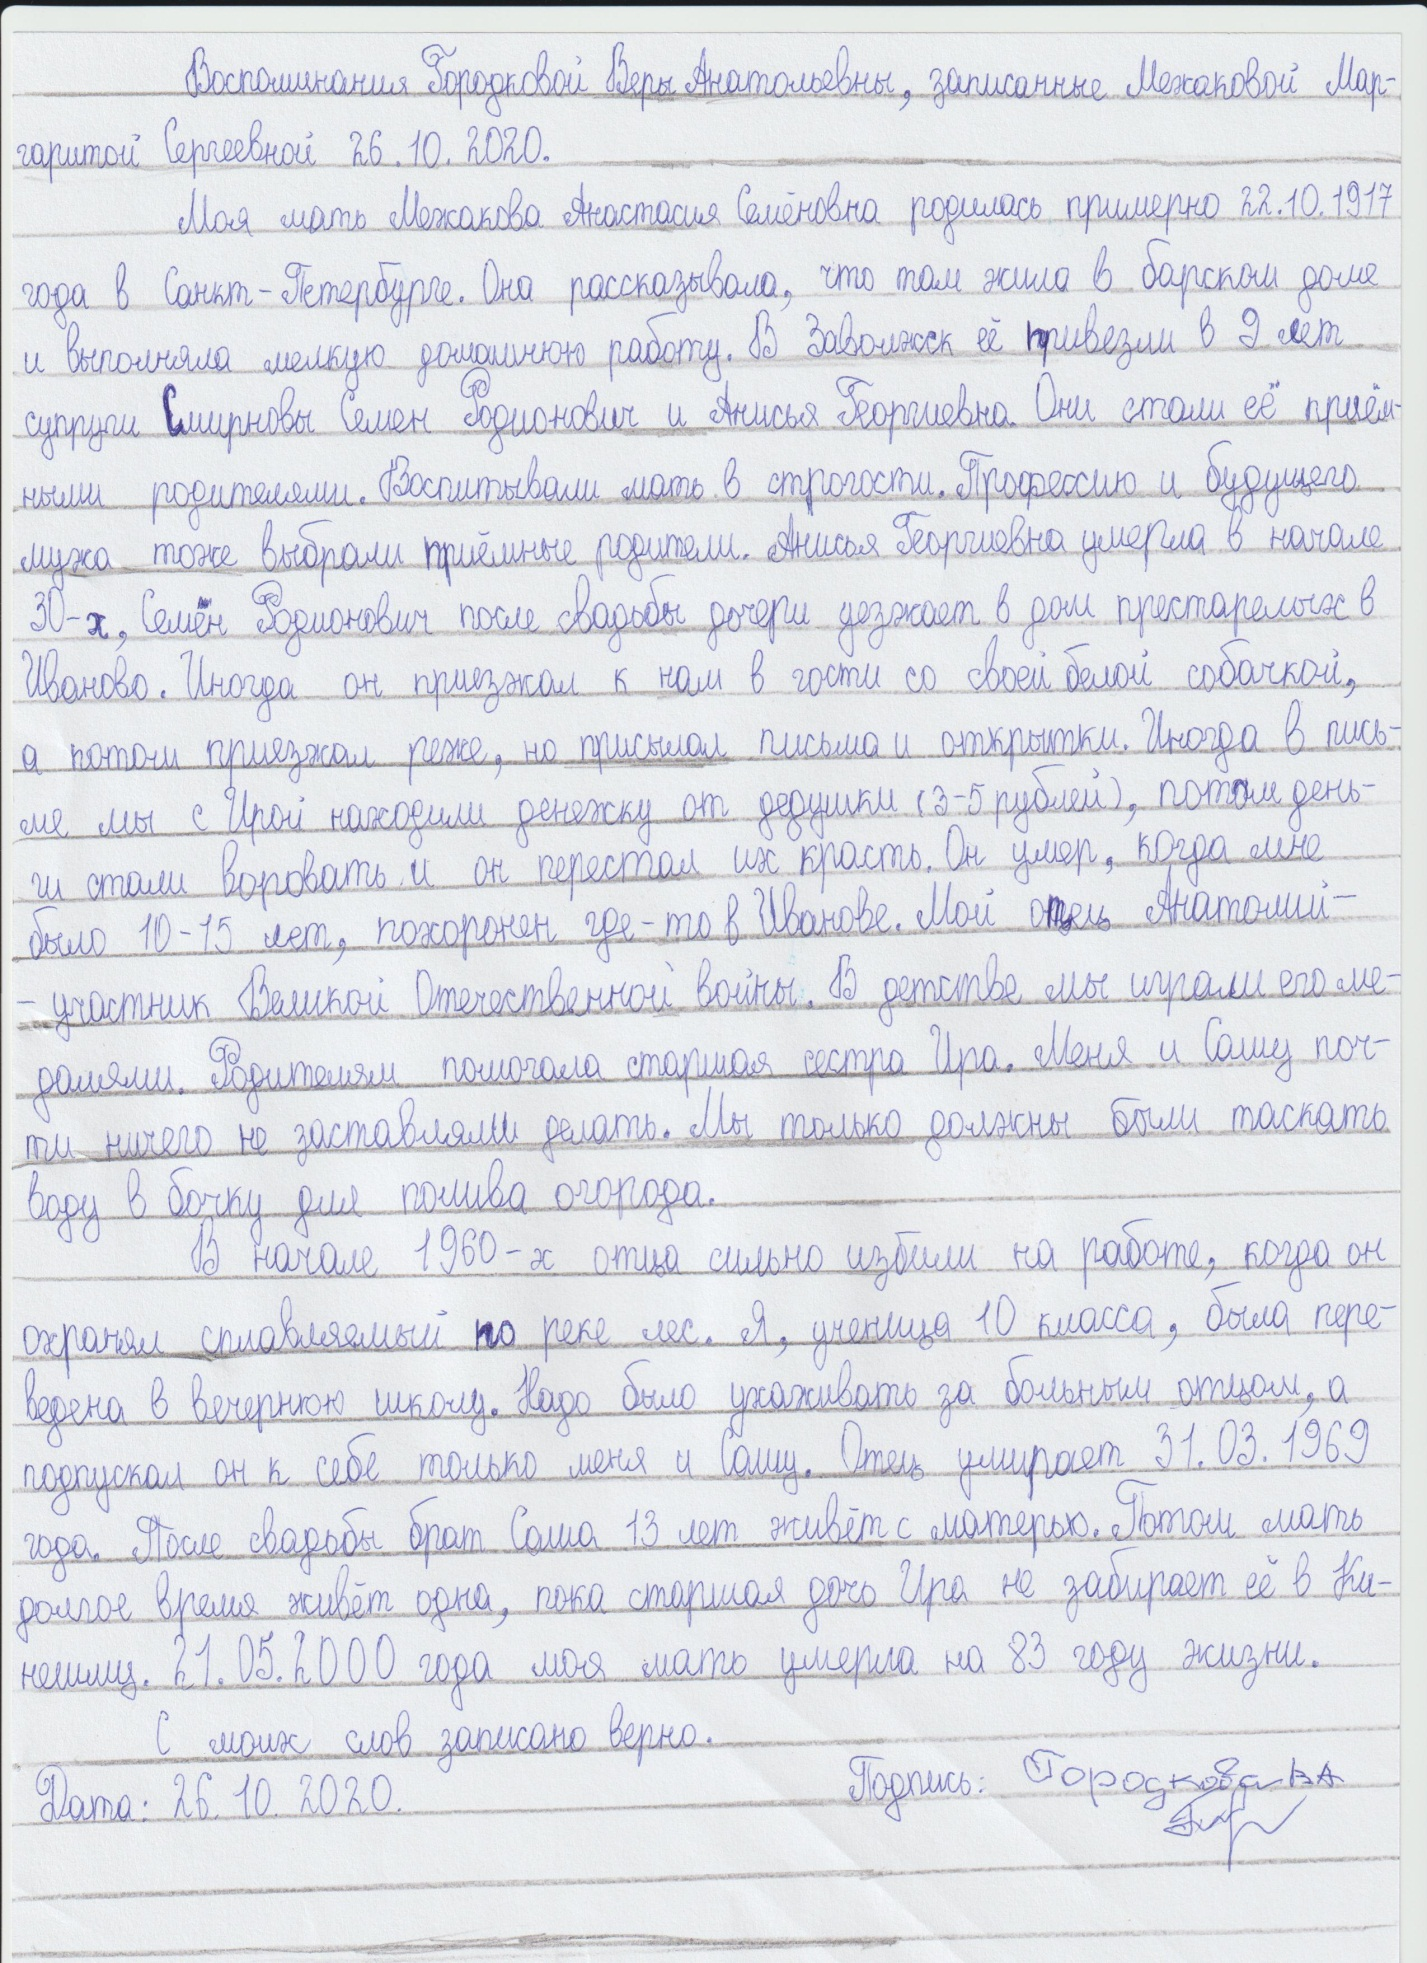 Воспоминания Городковой Веры Анатольевны, записанные Межаковой Мар-
гаритой Сергеевной 26.10.2020.
Моя мать Межакова Анастасия Семёновна родилась примерно 22.10.1917
года в Санкт-Петербурге. Она рассказывала, что там жила в барском доме
и выполняла мелкую домашнюю работу. В Заволжск её привезли в 9 лет
супруги Смирновы Семен Родионович и Анисья Георгиевна. Они стали её приём-
ными родителями. Воспитывали мать в строгости. Профессию и будущего
мужа тоже выбрали приёмные родители. Анисья Георгиевна умерла в начале
30-х, Семён Родионович после свадьбы дочери уезжает в дом престарелых в
Иваново. Иногда он приезжал к нам в гости со своей белой собачкой,
а потом приезжал реже, но присылал письма и открытки. Иногда в пись-
ме мы с Ирой находили денежку от дедушки (3-5 рублей), потом день-
ги стали воровать и он перестал их красть. Он умер, когда мне
было 10-15 лет, похоронен где-то в Иванове. Мой отец Анатолий-
- участник Великой Отечественной войны. В детстве мы играли его ме-
далями. Родителям помогала старшая сестра Ира. Меня и Сашу поч-
ти ничего не заставляли делать. Мы только должны были таскать
воду в бочку для полива огорода.
В начале 1960-х отца сильно избили на работе, когда он
охранял сплавляемый по реке лес. Я, ученица 10 класса, была пере-
ведена в вечернюю школу. Надо было ухаживать за больным отцом, а
подпускал он к себе только меня и Сашу. Отец умирает 31.03.1969
года. После свадьбы брат Саша 13 лет живёт с матерью. Потом мать
долгое время живёт одна, пока старшая дочь Ира не забирает её в Ки-
нешму. 21.05.2000 года моя мать умерла на 83 году жизни.
С моих слов записано верно.
Дата: 26.10.2020. Подпись: Городкова ВА